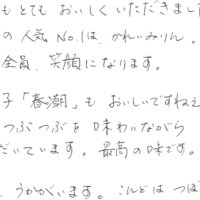 もとてもおいしくいただきました
の人気No.1は、かれいみりん。
全員、笑顔になります。
子「春潮」もおいしいですねえ
つぶつぶを味わいながら
だいています。最高の味です。
、うかがいます。こんどはつぼ